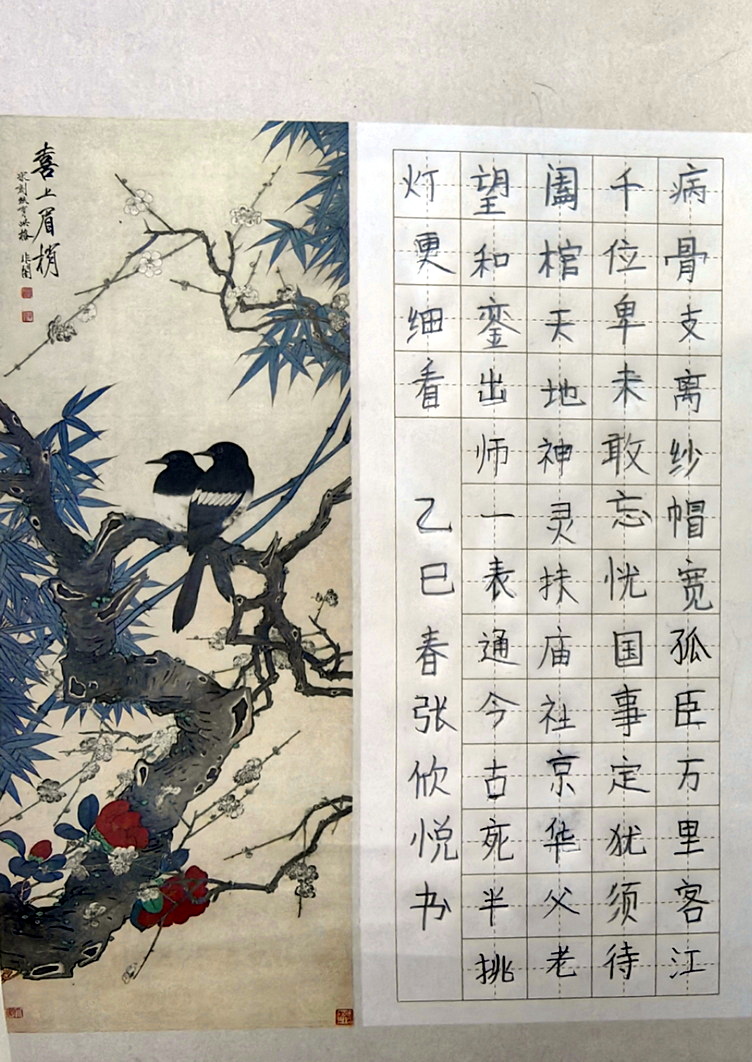 病骨支离纱帽宽孤臣万里客江
千位卑未敢忘恍国事定犹须待
阖棺天地神灵扶庙社京华父老
望和銮出师一表通今古夜半挑
灯更细看
乙巳春张欣悦书
喜上眉梢
宋刻丝有此格 非闇